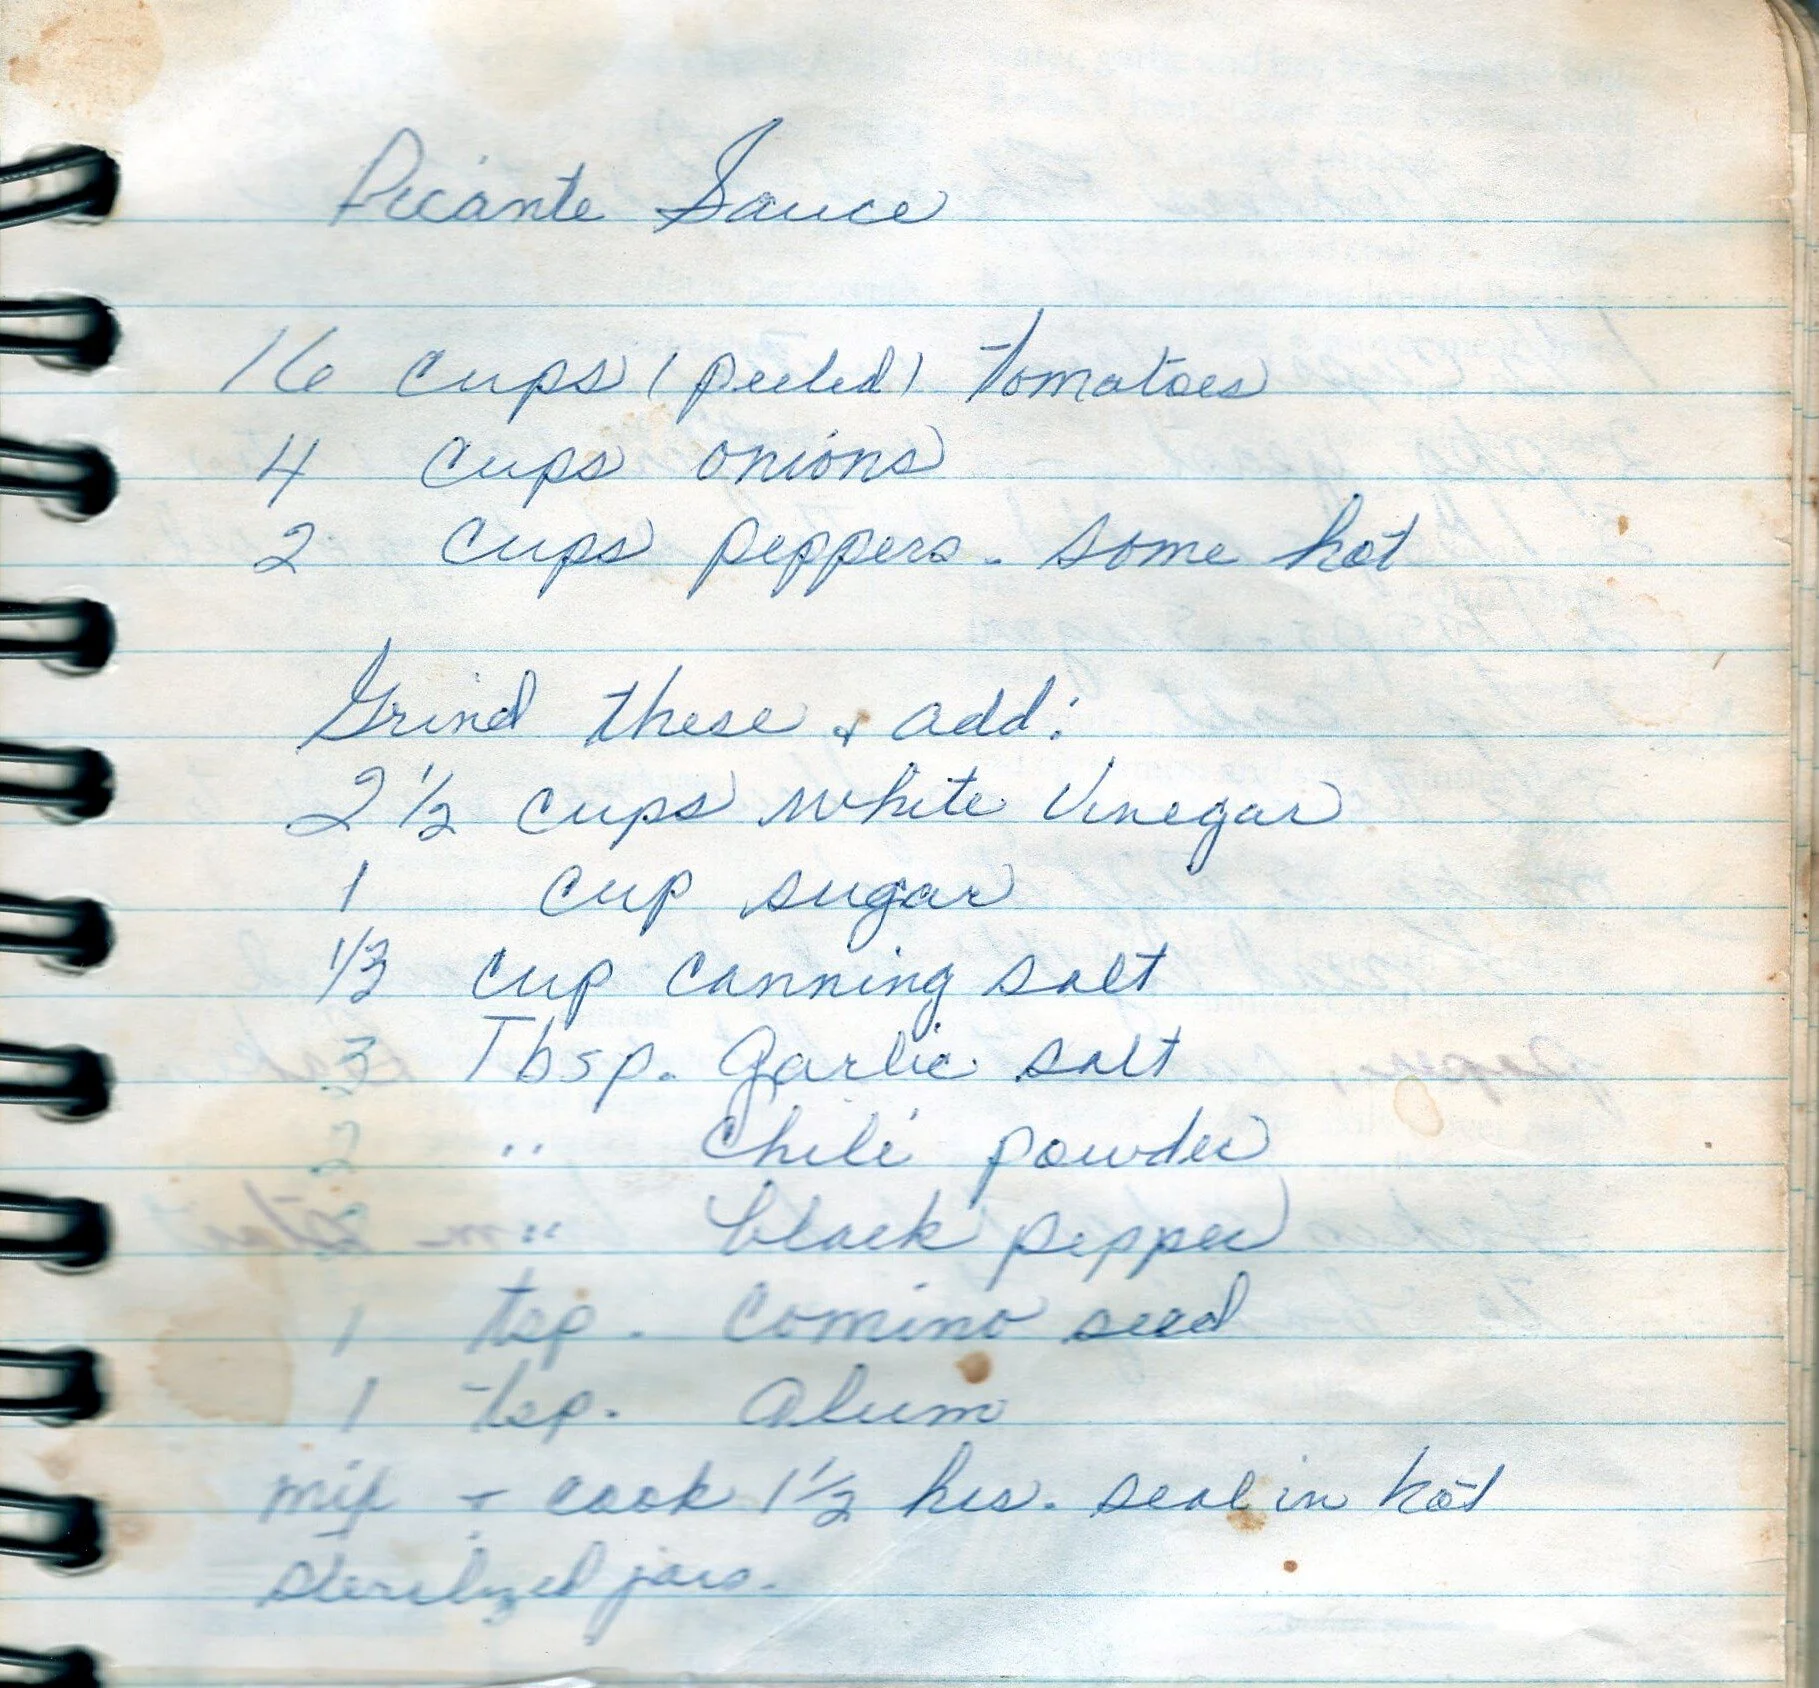 Picante Sauce
16 cups (peeled) tomatoes
4 cups onions
2 cups peppers - some hot
Grind these + add:
2 1/2 cups white Vinegar
1 cup sugar
1/3 cup canning salt
3 Tbsp. Garlic salt
2 " Chili powder
" black pepper
1 tsp. Comino seed
1 tsp. Alum
mix + cook 1 1/2 hrs. seal in hot
sterilized jars.